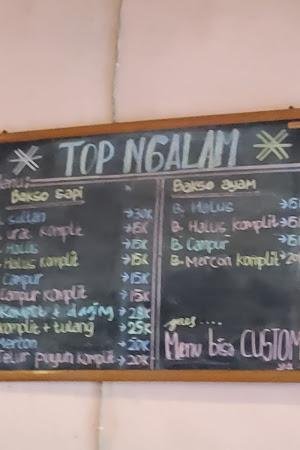 TOP NGALAM
Menu:
Bakso sapi
Sultan → 30K
Urat komplit → 15K
Halus → 15K
Halus komplit → 15K
Campur → 15K
Campur komplit → 15K
Komplit + daging → 28K
Komplit + tulang → 25K
Mercon → 20K
Telur puyuh komplit → 20K
Bakso ayam
B. Halus → 15
B. Halus komplit → 15
B. Campur → 15
B. Mercon komplit → 20
Menu bisa CUSTOM